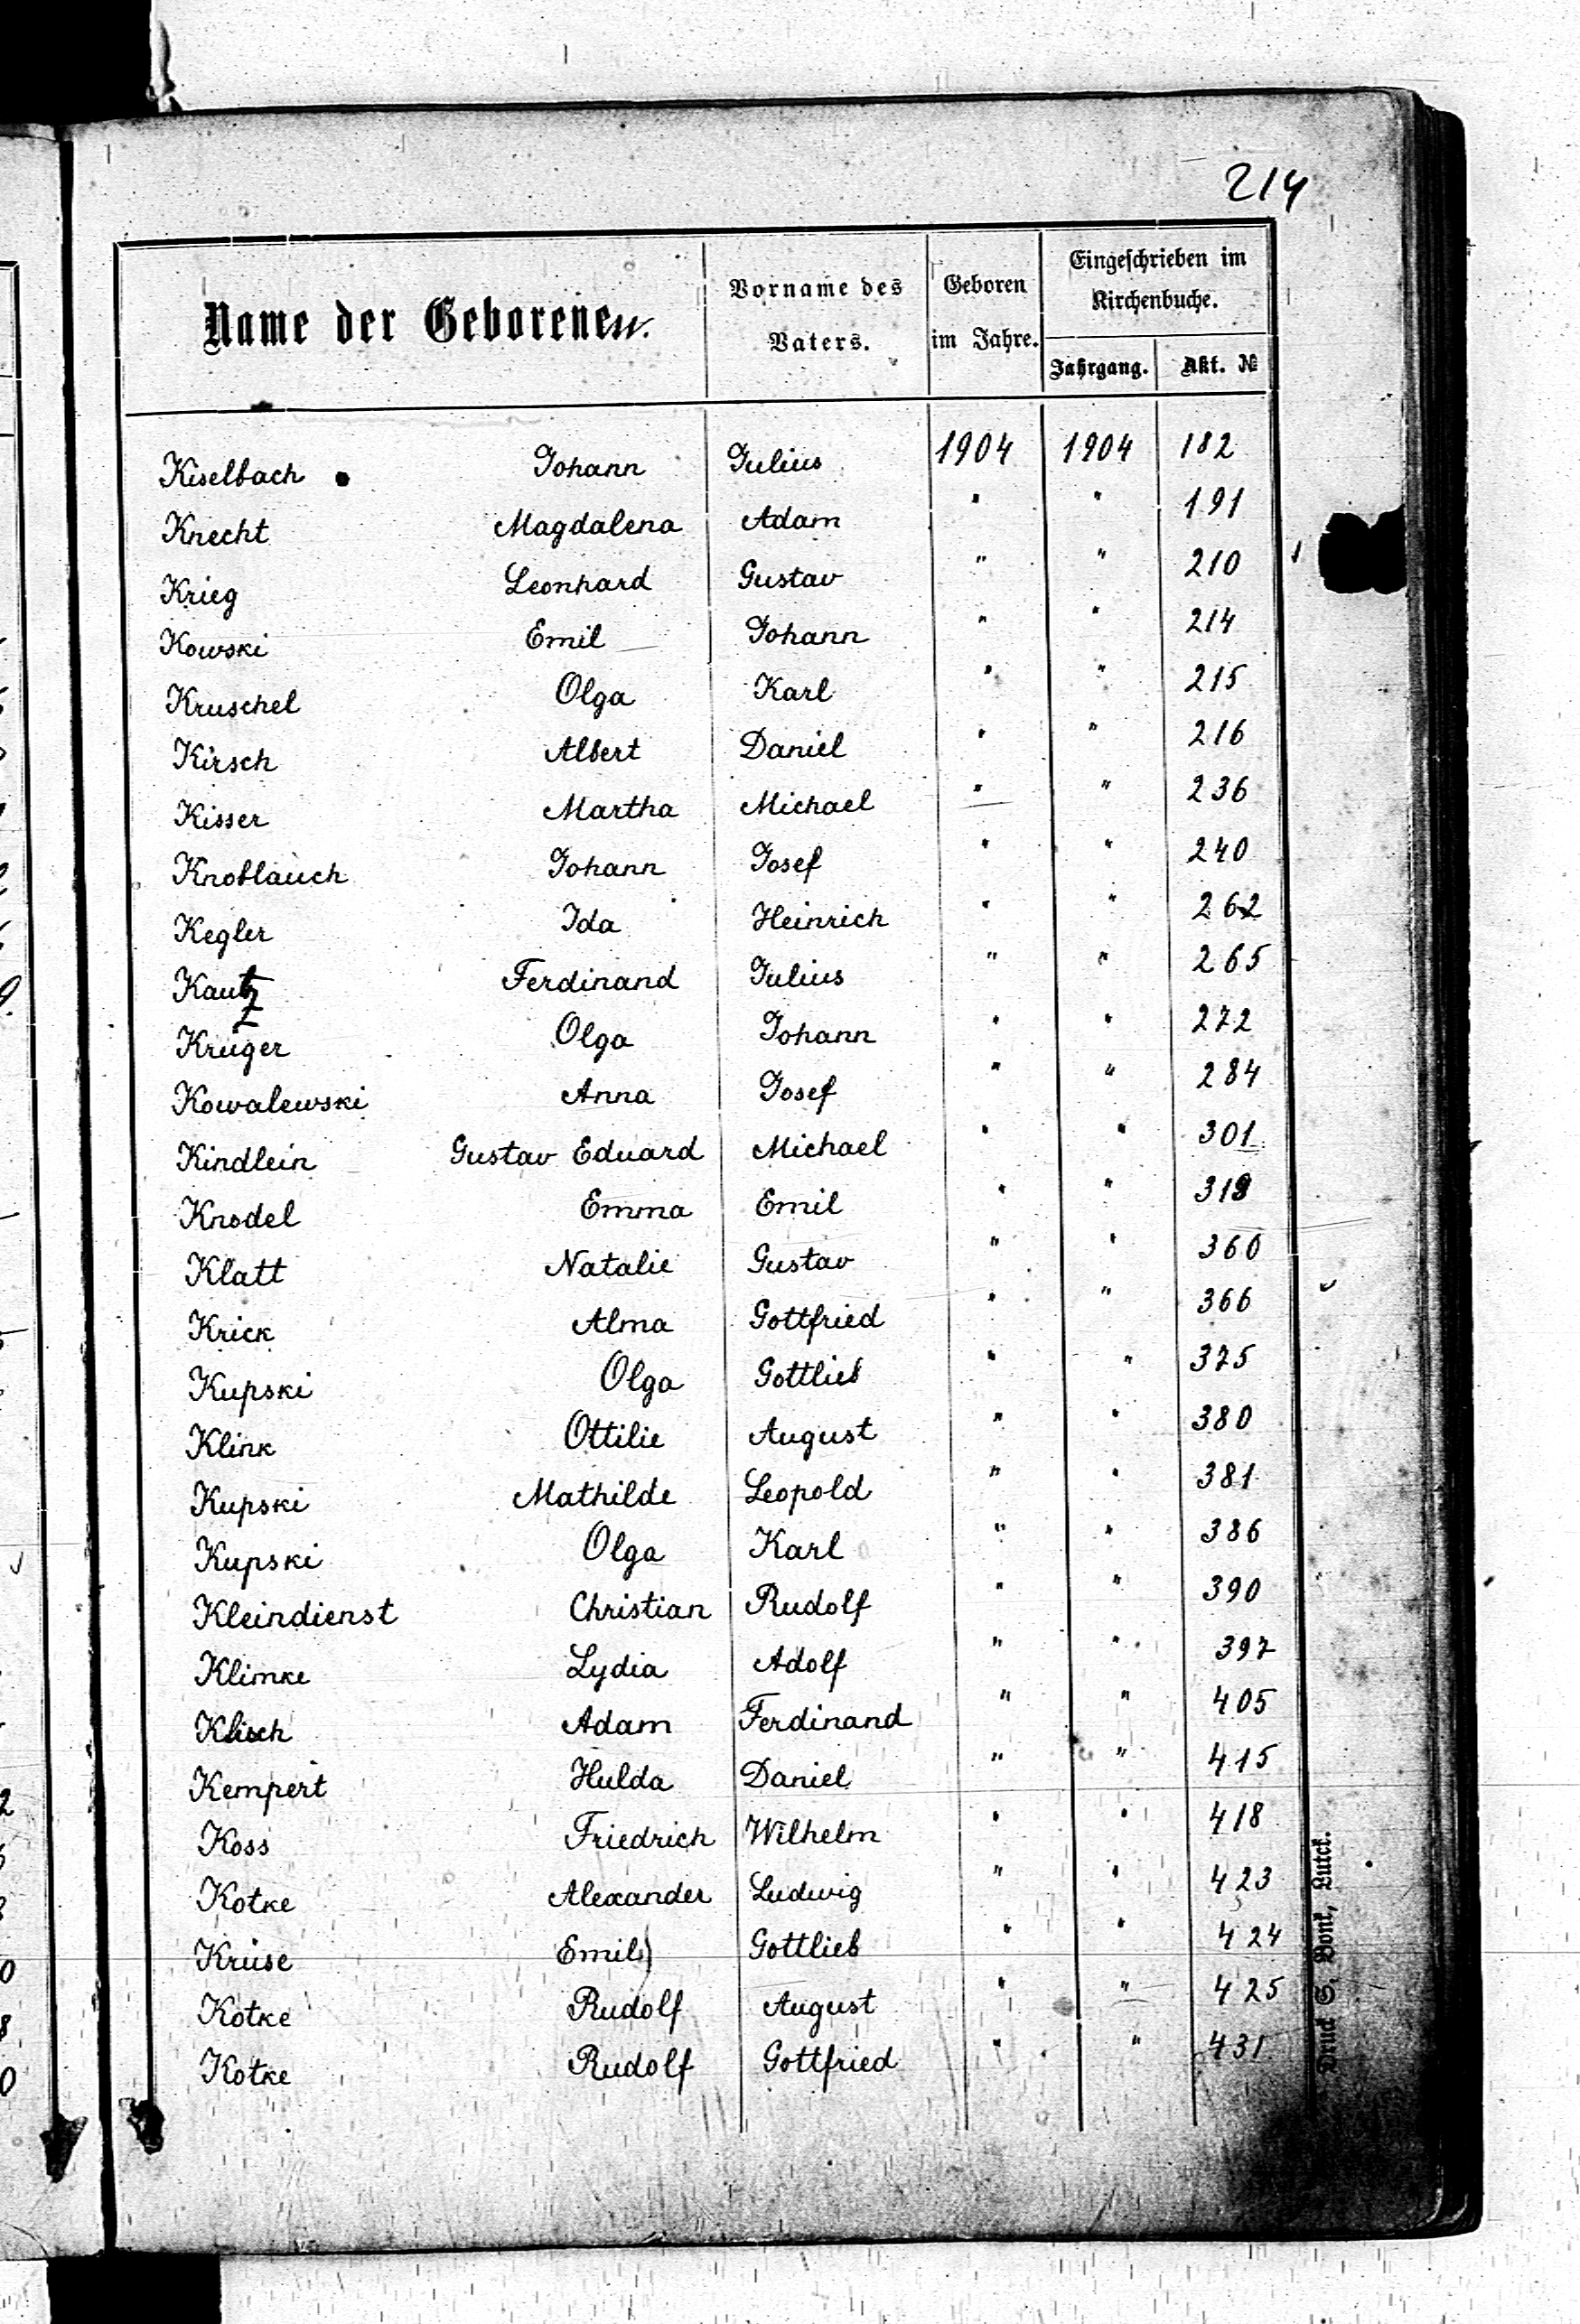 214
Name der Geborenen. Vorname des Vaters. Geboren im Jahre. Eingeschrieben im Kirchenbuche.
Jahrgang. Akt. №
Kiselbach Johann Julius 1904 1904 182
Knecht Magdalena Adam " " 191
Krieg Leonhard Gustav " " 210
Kowski Emil Johann " " 214
Kruschel Olga Karl " " 215
Kirsch Albert Daniel " " 216
Kisser Martha Michael " " 236
Knoblauch Johann Josef " " 240
Kegler Ida Heinrich " " 262
Kautz Ferdinand Julius " " 265
Krüger Olga Johann " " 272
Kowalewski Anna Josef " " 284
Kindlein Gustav Eduard Michael " " 301
Knodel Emma Emil " "
Klatt Natalie Gustav " " 360
Krick Alma Gottfried " " 366
Kupski Olga Gottlieb " " 375
Klink Ottilie August " " 380
Kupski Mathilde Leopold " " 381
Kupski Olga Karl " " 386
Kleindienst Christian Rudolf " " 390
Klimke Lydia Adolf " " 397
Klisch Adam Ferdinand " " 405
Kempert Hulda Daniel " " 415
Koss Friedrich Wilhelm " " 418
Kotke Alexander Ludwig " " 423
Kruse Emil Gottlieb " " 424
Kotke Rudolf August " " 425
Kotke Rudolf Gottfried " " 431
Druck S. Bonk, Lutck.